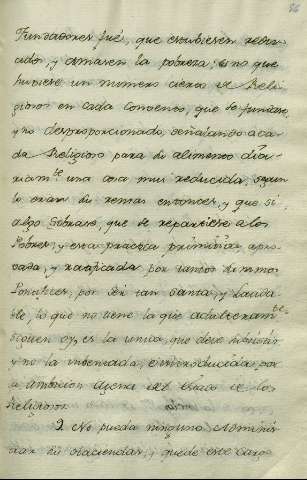 Fundadores fué, que estubiesen redu-
cidos, y amasen la pobreza; sino que
hubiese un numero cierto de Reli-
giosos en cada Convento, que se fundase,
y no desproporcionado, señalando a ca-
da Religioso para su alimento dia-
riam.te una cosa mui reducida, segun
lo eran sus rentas entonces, y que si
algo sobrase, que se repartiese a los
Pobres, y esta practica primitiva apro-
vada, y ratificada por tantos Summos
Pontifices, por ser tan santa, y lauda-
ble, lo que no tiene la que adulteram.te
siguen oy, es la unica que debe
y no la inventada, e introducida por
la ambicion agena del estado de los
Religiosos.
2. No pueda ninguno adminis-
trar sus Haciendas, y quede este cargo